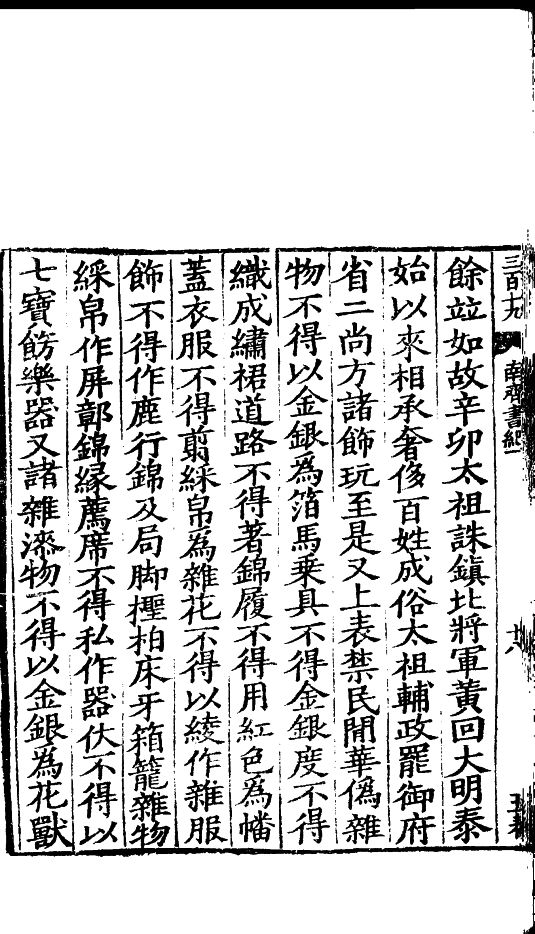 三百十九
南齊書紀一
十八
餘竝如故辛卯太祖誅鎭北將軍黃回大明泰
始以來相承奢侈百姓成俗太祖輔政罷御府
省二尚方諸飾玩至是又上表禁民閒華僞雜
物不得以金銀爲箔馬乗具不得金銀度不得
織成繡裙道路不得著錦履不得用紅色爲幡
蓋衣服不得剪綵帛爲雜花不得以綾作雜服
飾不得作鹿行錦及局脚檉柏床牙箱籠雜物
綵帛作屏鄣錦緣薦席不得私作器仗不得以
七寶飾樂器又諸雜漆物不得以金銀爲花獸